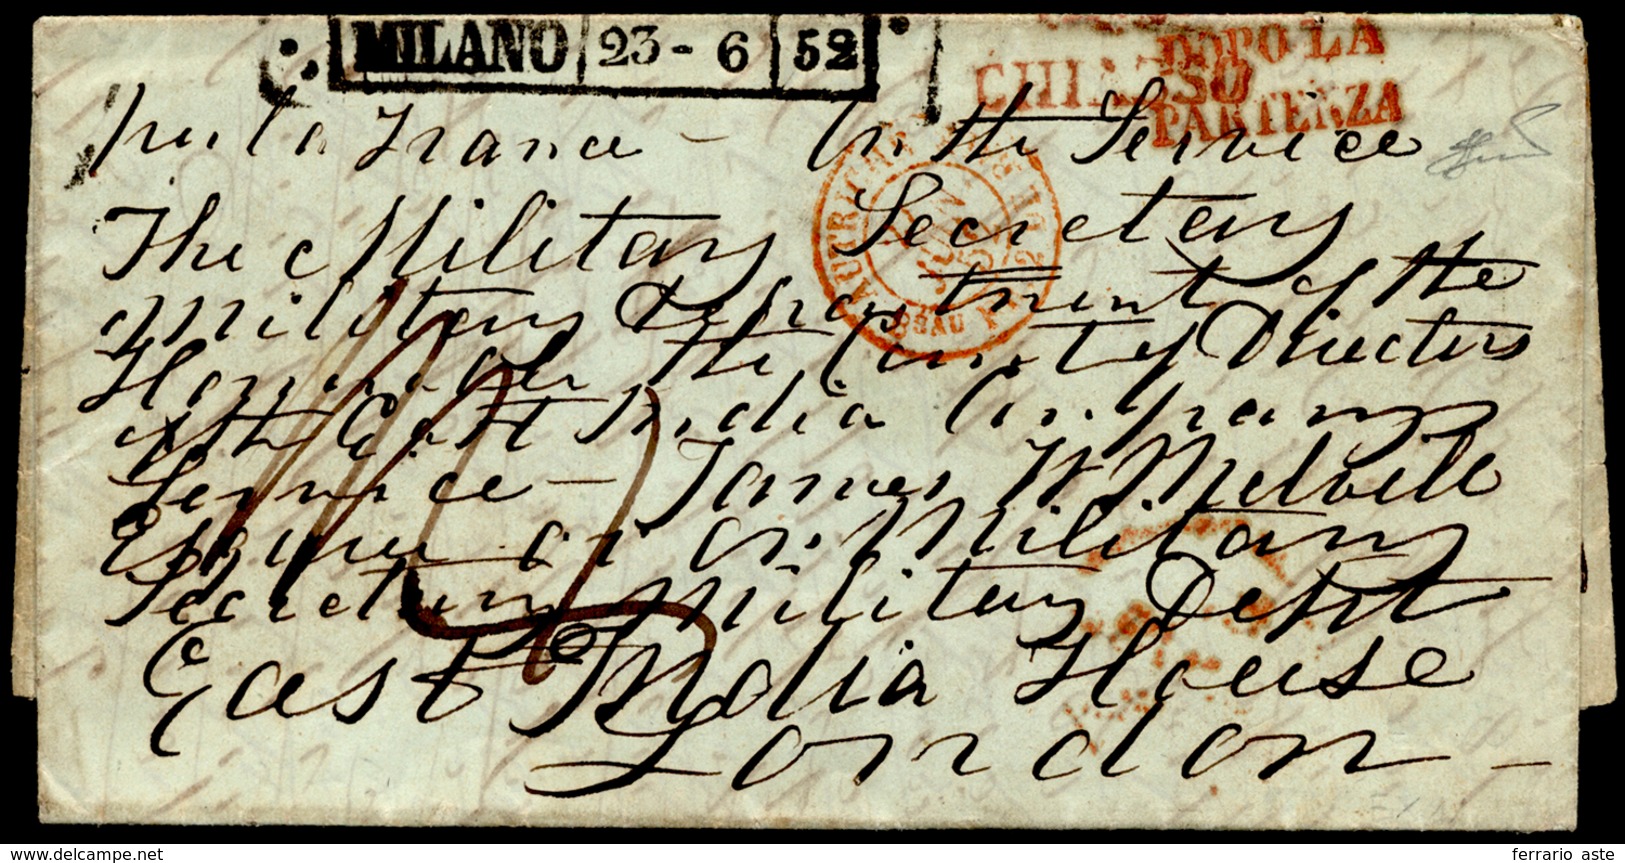 MILANO 23 - 6 52
DOPO LA
CHIASSO
PARTENZA
per la France - On the Service
The Military Secretary
Military Department of the
Honourable the Court of Directors
of the East India Company
Service - James W Melvill
Esquire or in Military
Secretary Military Dept
East India House
London -
ferrario aste